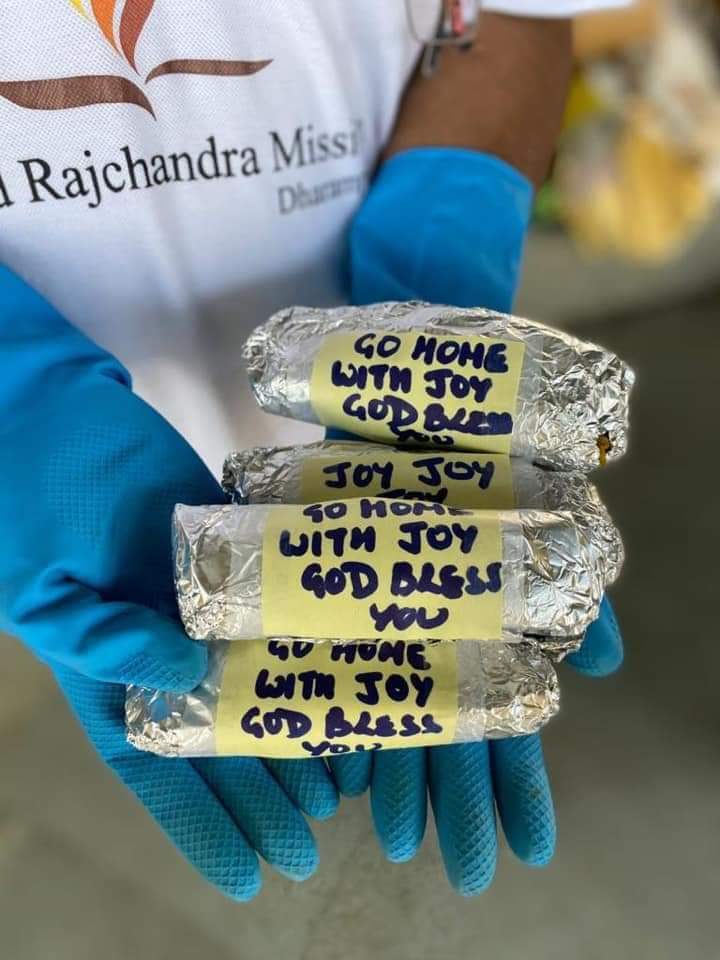 Rajchandra
GO HOME
WITH JOY
GOD BLESS
YOU
JOY JOY
JOY
GO HOME
WITH JOY
GOD BLESS
YOU
GO HOME
WITH JOY
GOD BLESS
YOU